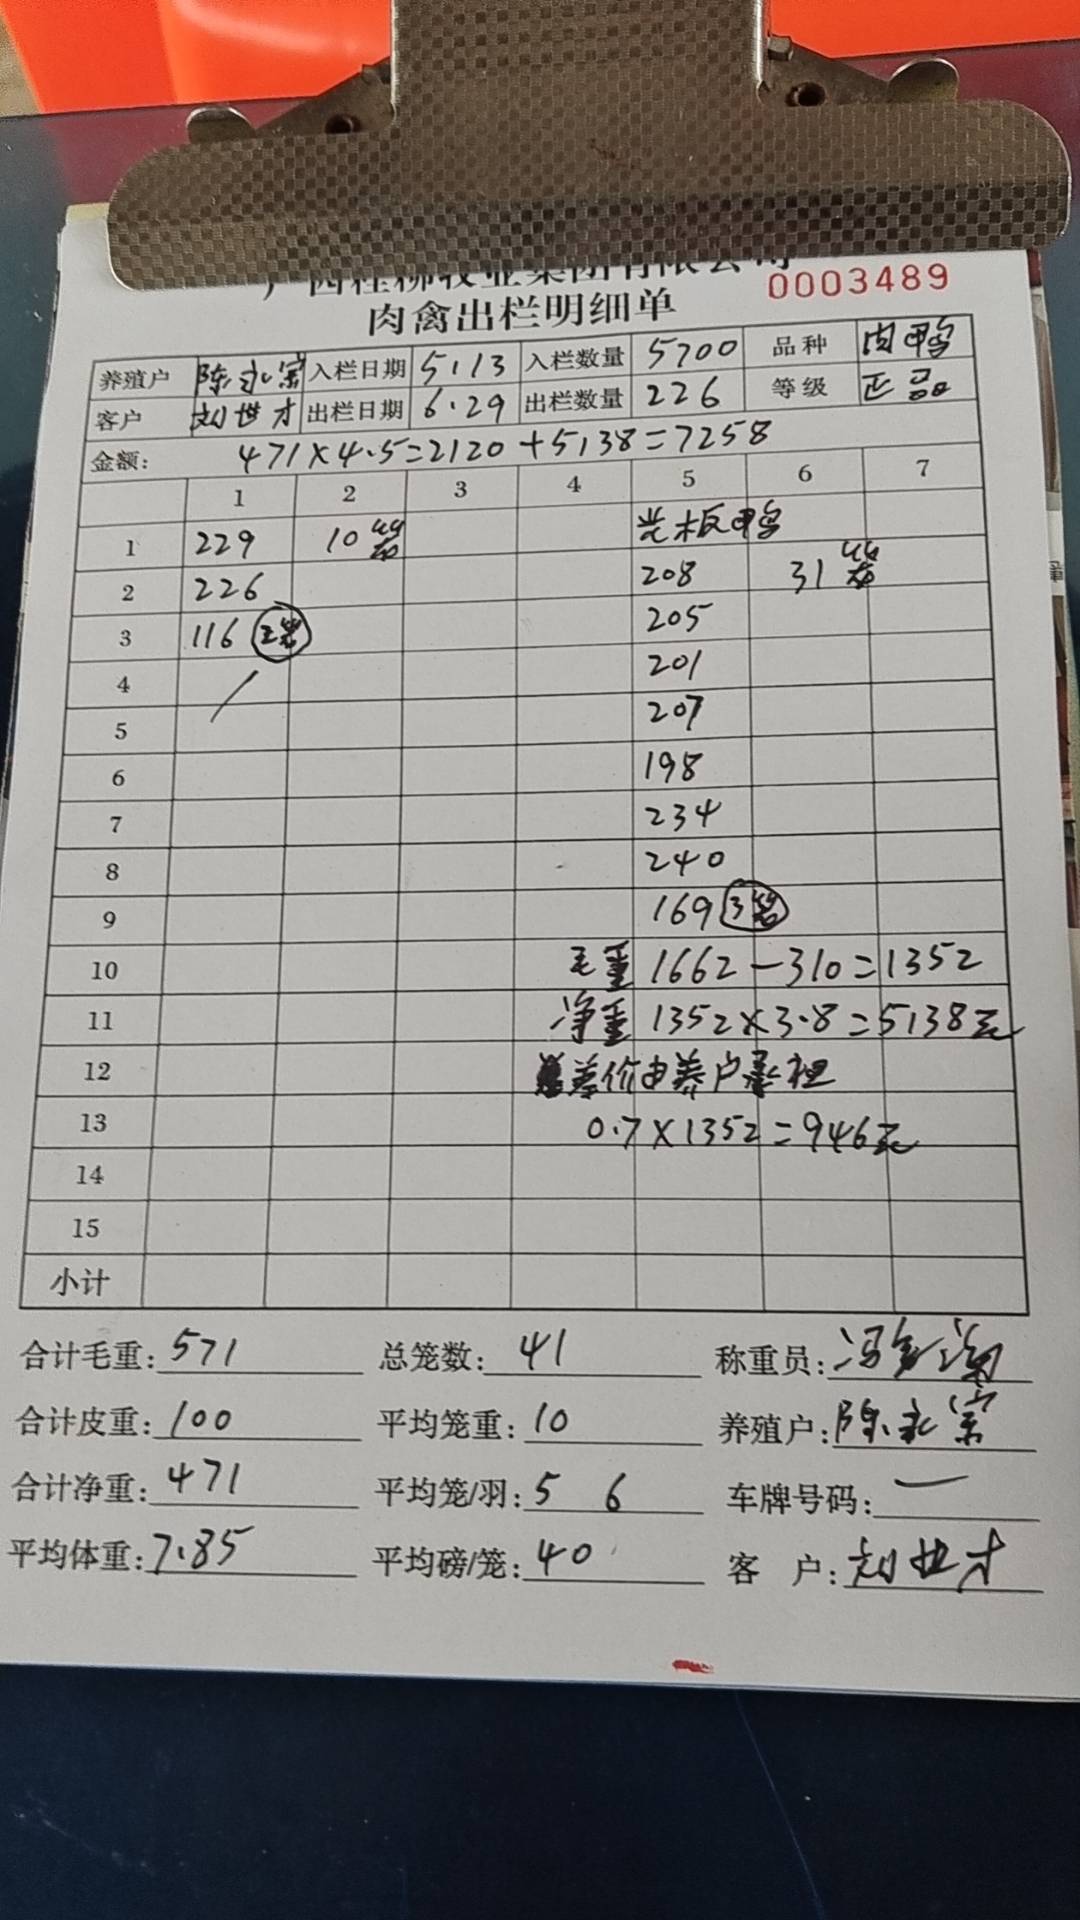 广西桂柳牧业集团有限公司
肉禽出栏明细单 0003489
养殖户 陈永宗 入栏日期 5.13 入栏数量 5700 品种 肉鸭
客户 刘世才 出栏日期 6.29 出栏数量 226 等级 正品
金额: 471×4.5=2120+5138=7258
1 2 3 4 5 6 7
1 229 10笼 光板鸭
2 226 208 31笼
3 116 2笼 205
4 201
5 207
6 198
7 234
8 240
9 169 3笼
10 毛重 1662-310=1352
11 净重 1352×3.8=5138元
12 差价由养户承担
13 0.7×1352=946元
14
15
小计
合计毛重: 571 总笼数: 41 称重员: 冯
合计皮重: 100 平均笼重: 10 养殖户: 陈永宗
合计净重: 471 平均笼/羽: 5 6 车牌号码: 一
平均体重: 7.85 平均磅/笼: 40 客 户: 刘世才